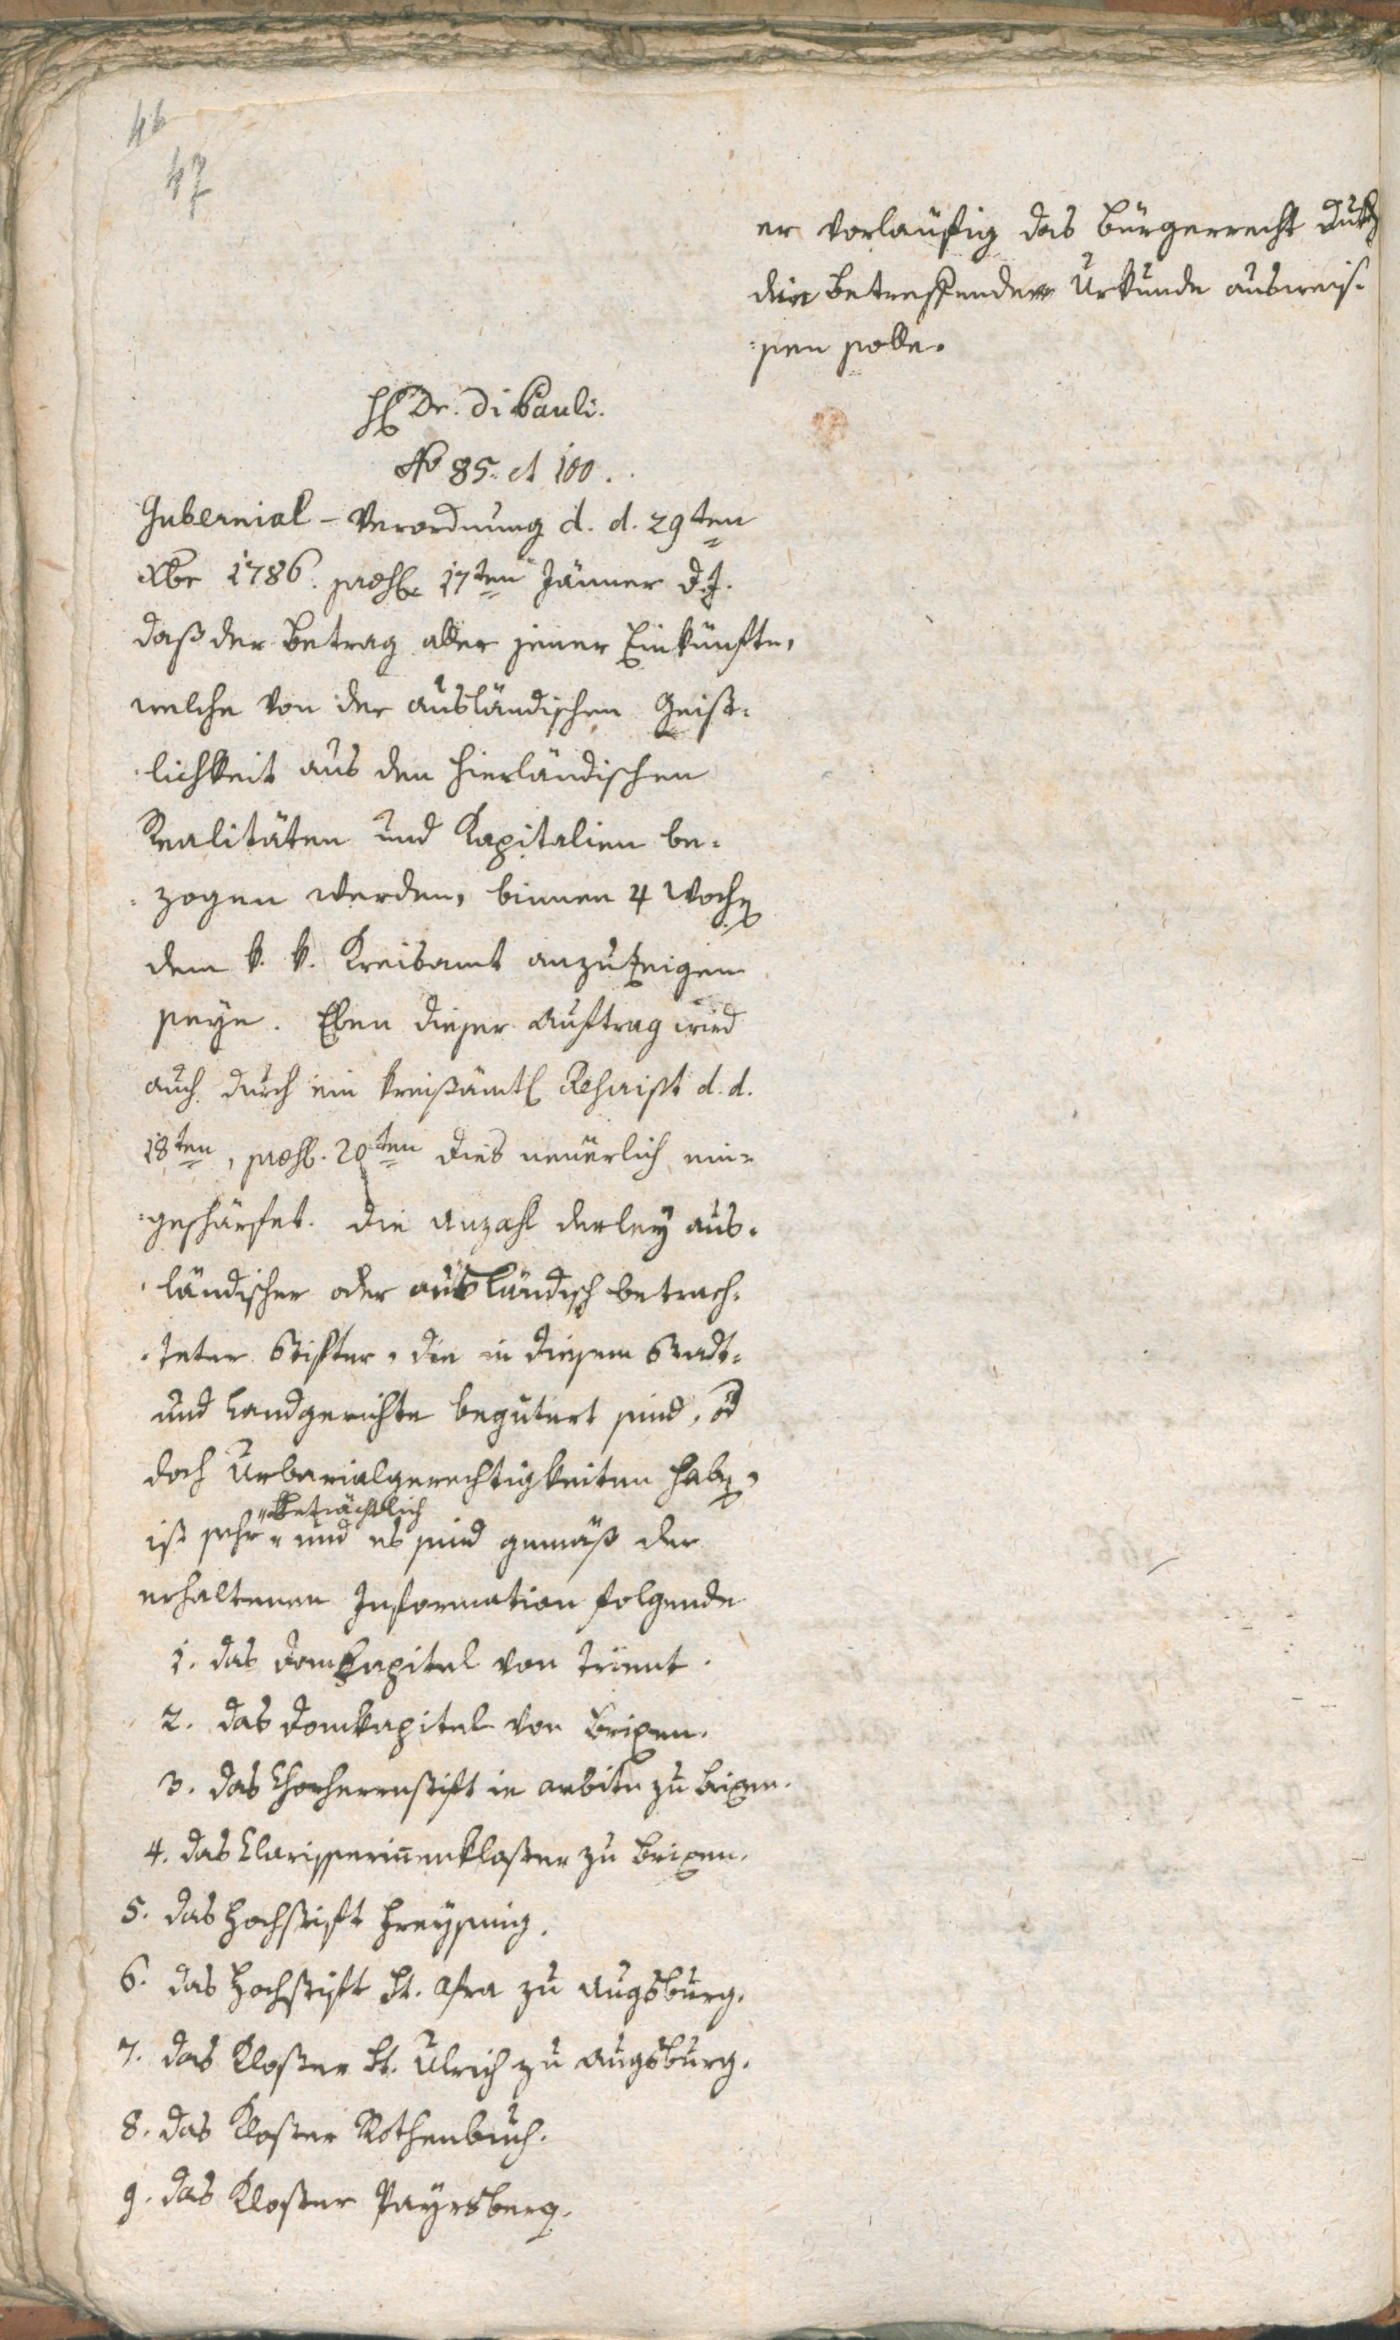 46
47
er vorläufig das Bürgerrecht durch
die betreffende Urkunde ausweis-
:sen solle.
H Dr. di Pauli.
No 85. et 100.
Gubernial-Verordnung d. d. 29ten
Xbr 1786. praes. 17ten Jänner d. J.
daß der Betrag aller jener Einkünfte,
welche von der ausländischen Geist-
:lichkeit aus den hierländischen
Realitäten und Kapitalien be-
:zogen werden, binnen 4 Wochen
dem k. k. Kreisamt anzuzeigen
seye. Eben dieser Auftrag wird
auch durch ein kreisämtl Rescript d. d.
18ten, praes. 20ten dies neuerlich ein-
:geschärfet. Die Anzahl derley aus-
:ländischer oder ausländisch betrach-
:teter Stifter, die in diesem Stadt-
und Landgerichte begütert sind, od
doch Urbarialgerechtigkeiten haben,
ist sehr beträchtlich und es sind gemäß der
erhaltenen Information folgende
1. das Domkapitel von Trient.
2. das Domkapitel von Brixen.
3. das Chorherrnstift in ambitu zu Brixen.
4. das Clarisserinnenkloster zu Brixen.
5. das Hochstift Freysing.
6. das Hochstift St. Afra zu Augsburg.
7. das Kloster St. Ulrich zu Augsburg.
8. das Kloster Rothenbuch.
9. das Kloster Payrsberg.